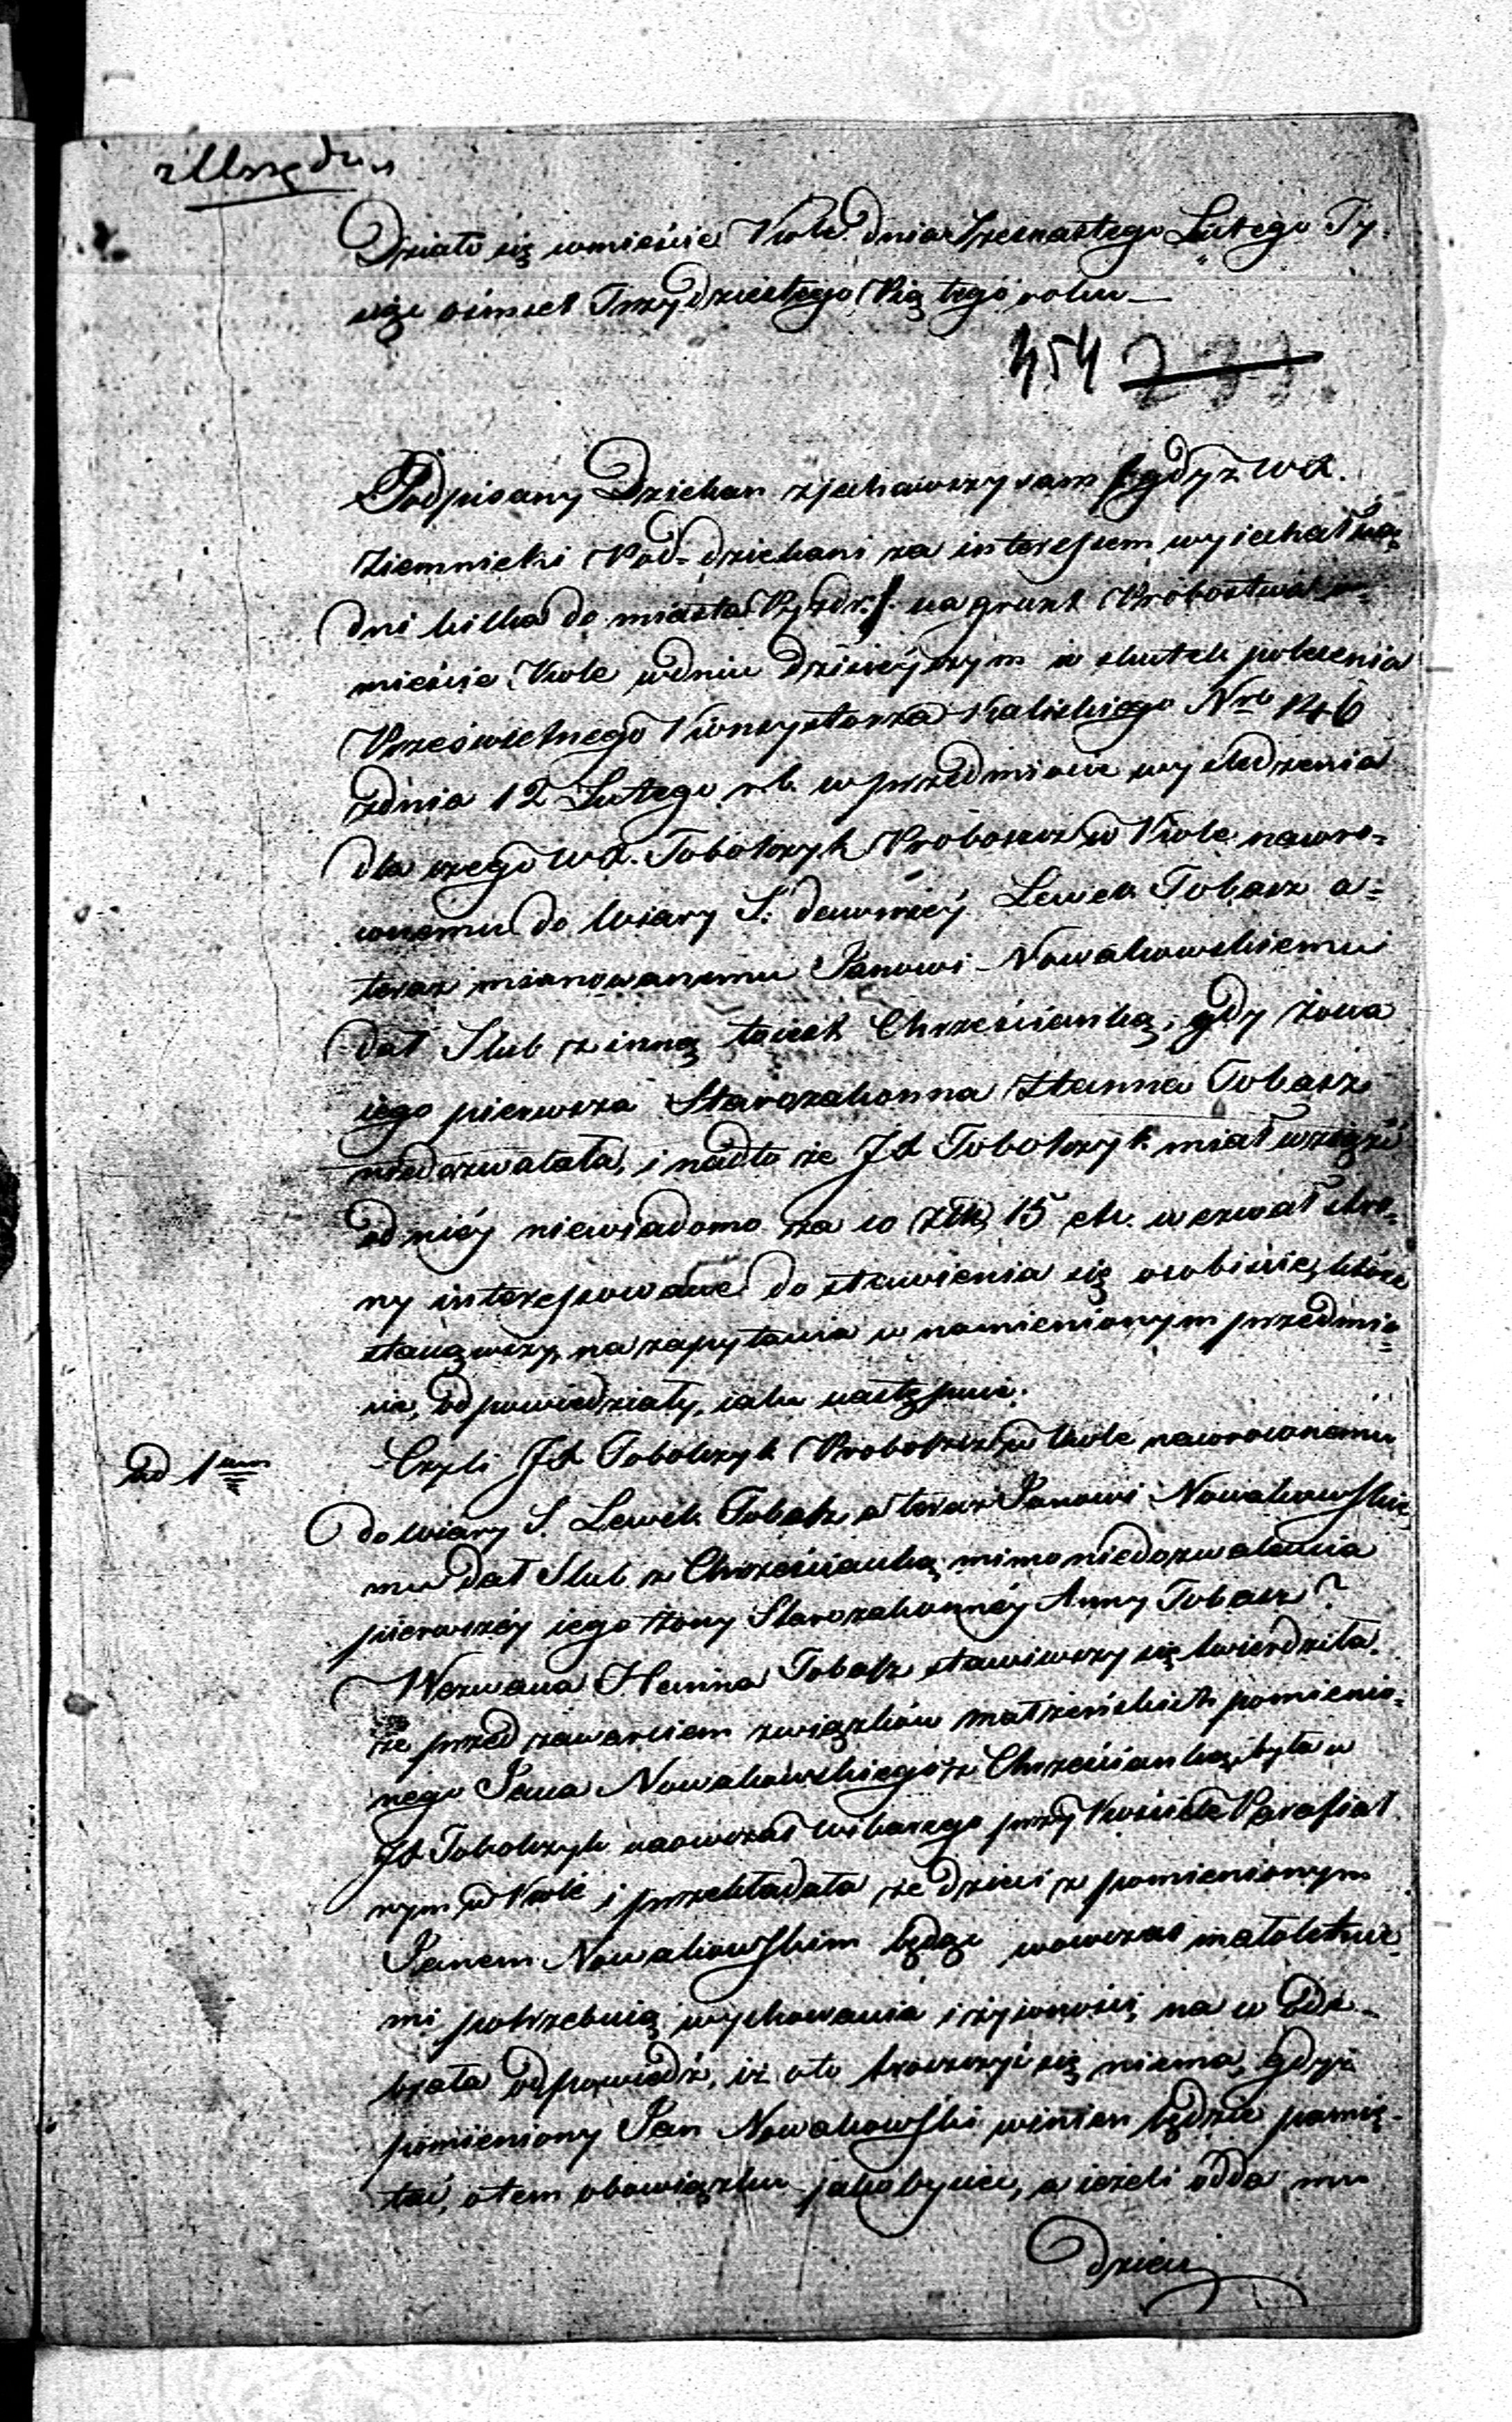 z Urzędu
Działo się w mieście Kole dnia Trzenastego Lutego Ty-
siąc ośmset Trzydziestego Piątego roku —
454 233.
Podpisany Dziekan zjechawszy sam /: gdyż WX.
Ziemnicki Pod-dziekani za interessem wyiechał na
dni kilka do miasta Pyzdr :/ na grunt Probostwa w
mieście Kole w dniu dzisieyszym w skutek polecenia
Prześwietnego Konsystorza Kaliskiego Nro 146
z dnia 12 Lutego r.b. w przedmiocie wyśledzenia
dla czego WX. Tobolczyk Proboszcz w Kole nawró-
conemu do Wiary S. dawniéy Lewek Tobasz a-
teraz mianowanemu Janowi Nowakowskiemu
dał Slub z inną Chrześcianką, gdy żona
iego pierwsza Starozakonna Hanna Tobasz
niedozwalała, i nadto że JX Tobolczyk miał wziąść
od niéy niewiadomo za co złl. 15 etc. wezwał stro-
ny interessowane do stawienia się osobiście, które
stanąwszy, na zapytania w namienionym przedmio-
cie, odpowiedziały, iako następuie.
ad 1um
Czyli JX Tobolczyk Proboszcz w Kole nawróconemu
do Wiary S. Lewek Tobasz, a teraz Janowi Nowakowskie-
mu dał Slub z Chrześcianką mimo niedozwalania
pierwszéy iego żony Starozakonnéy Anny Tobasz?
Wezwana Hanna Tobasz stawiwszy się twierdziła.
że przed zawarciem związków małżeńskich pomienio-
nego Jana Nowakowskiego z Chrześcianką, była u
JX Tobolczyk naowczas Wikarego przy Kościele Parafial-
nym w Kole i przekładała że dzieci z pomienionym
Janem Nowakowskim będąc wowczas małoletnie-
mi potrzebuią wychowania i żywności, na co ode-
brała odpowiedź, iż oto troszczyć się niema, gdyż
pomieniony Jan Nowakowski winien będzie pamię-
tać, o tem obowiązku jako oyciec, a ieżeli odda mu
dzieci